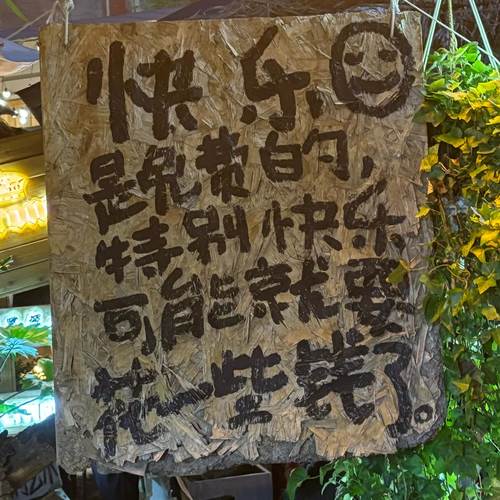 快乐
是免费的,
特别快乐
可能就要
花一些钱了。